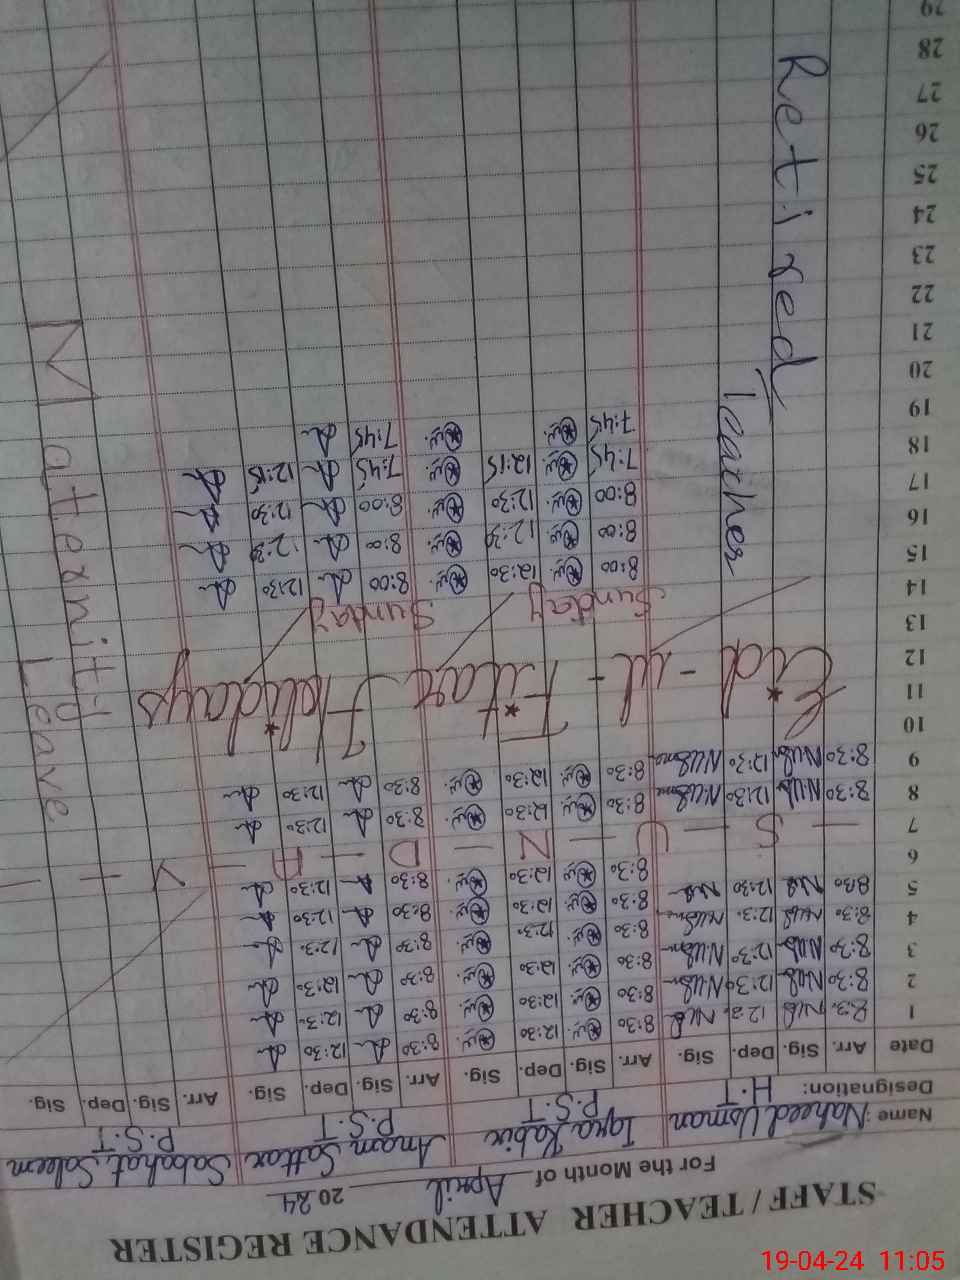 STAFF / TEACHER ATTENDANCE REGISTER
For the Month of April 2024
Name: Naheed Usman Iqra Kabir Anam Sattar Sabahat Saleem
Designation: H.T P.S.T P.S.T P.S.T
Date Arr. Sig. Dep. Sig. Arr. Sig. Dep. Sig. Arr. Sig. Dep. Sig. Arr. Sig. Dep. Sig.
1 8:30 12:30 8:30 12:30
2 8:30 12:30 8:30 12:30 8:30 12:30
3 8:30 12:30 8:30 12:30 8:30 12:30
4 8:30 12:30 8:30 12:30 8:30 12:30
5 8:30 12:30 8:30 12:30 8:30 12:30
6 8:30 12:30 8:30 12:30
7 - S - U - N - D - A - Y -
8 8:30 12:30 8:30 12:30 8:30 12:30
9 8:30 12:30 8:30 12:30 8:30 12:30
10
11 Eid-ul-Fitar Holidays
12
13
14 Sunday Sunday
15 8:00 12:30 8:00 12:30
16 8:00 12:30 8:00 12:30
17 8:00 12:30 8:00 12:30
18 7:45 12:15 7:45 12:15
19 7:45 7:45
20
21
22
23
24
25
26
27
28
29
Retired
Teacher
Maternity
Leave
19-04-24 11:05